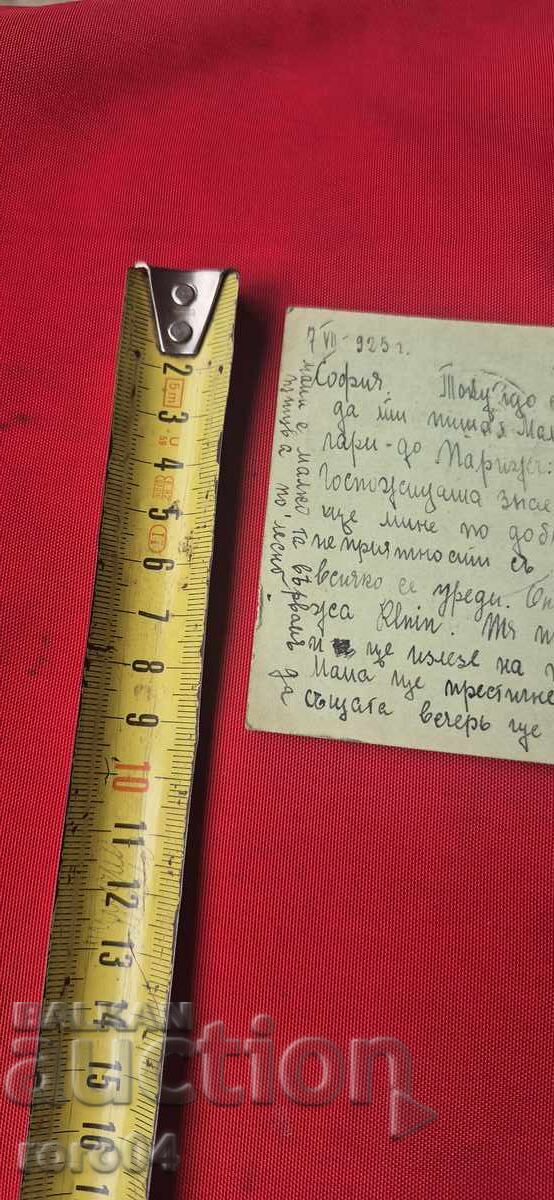 7 VII - 925 г.
София. Току що
да ти пиша. Ма
гари - до Парижъ.
Госпожицата знае
ще мине по доб
неприятности съ
всичко се уреди. Он
Klnin. Тя
и ще излезе на
Мама ще престигне
същата вечерь ще
мами е малко
по лесно
да
2
3
5m
4
5
6
7
8
9
10
11
12
13
14
15
16
1
BALKAN
auction
roro04